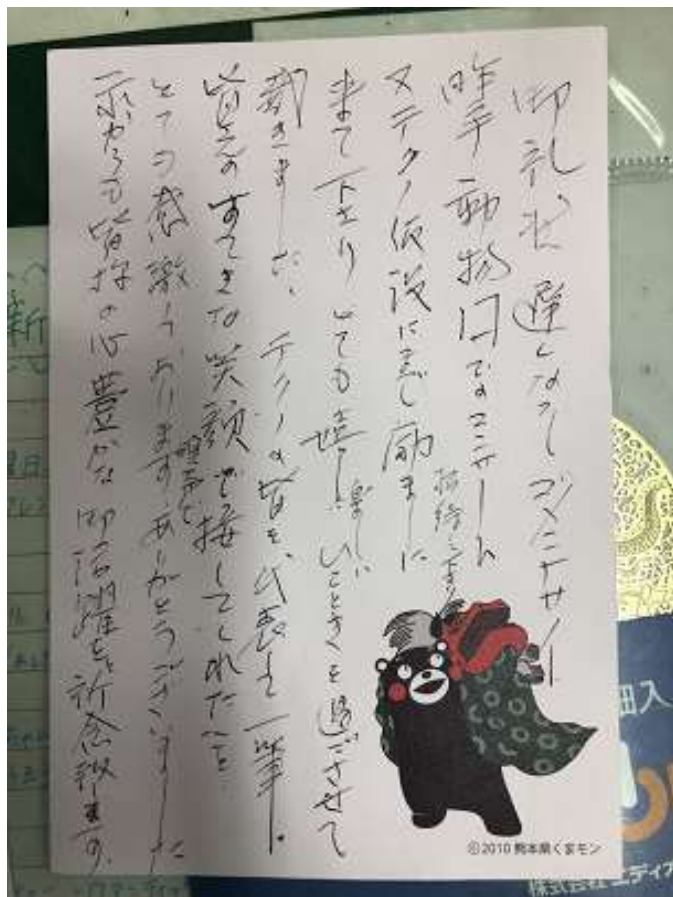 御礼が遅くなってゴメンナサイ
昨年動物园でのコンサート
招待して下さり
又テクノ仮設にまで励ましに
来て下さりとても嬉しい
楽しい
ひとときを過ごさせて
戴きました。テクノの皆を代表して一筆。
皆さんのすてきな笑顔で接してくれたことを
とても感激しております。ありがとうございました
皆様の心豊かな御活躍を祈念致します。
©2010 熊本県くまモン
新
細入
株式会社エディオ